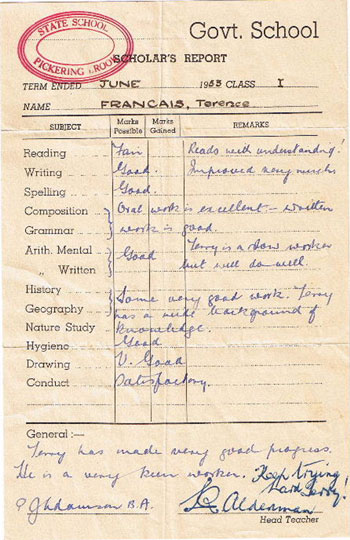 STATE SCHOOL
PICKERING BROOK
Govt. School
SCHOLAR'S REPORT
TERM ENDED JUNE 1953 CLASS I
NAME FRANCAIS, Terence
SUBJECT Marks Possible Marks Gained REMARKS
Reading Fair Reads with understanding!
Writing Good. Improved very much.
Spelling Good.
Composition Oral work is excellent – written
Grammar work is good.
Arith. Mental Good Terry is a slow worker
„ Written but will do well
History Some very good work. Terry
Geography has a wide background of
Nature Study knowledge.
Hygiene Good
Drawing V. Good
Conduct Satisfactory.
General :—
Terry has made very good progress.
He is a very keen worker. Keep trying
hard Terry!
B.A. Alderman
Head Teacher